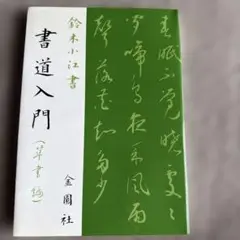 春眠不覺曉處々
聞啼鳥夜来風雨
聲花落知多少
鈴木小江書
書道入門
(草書編)
金園社